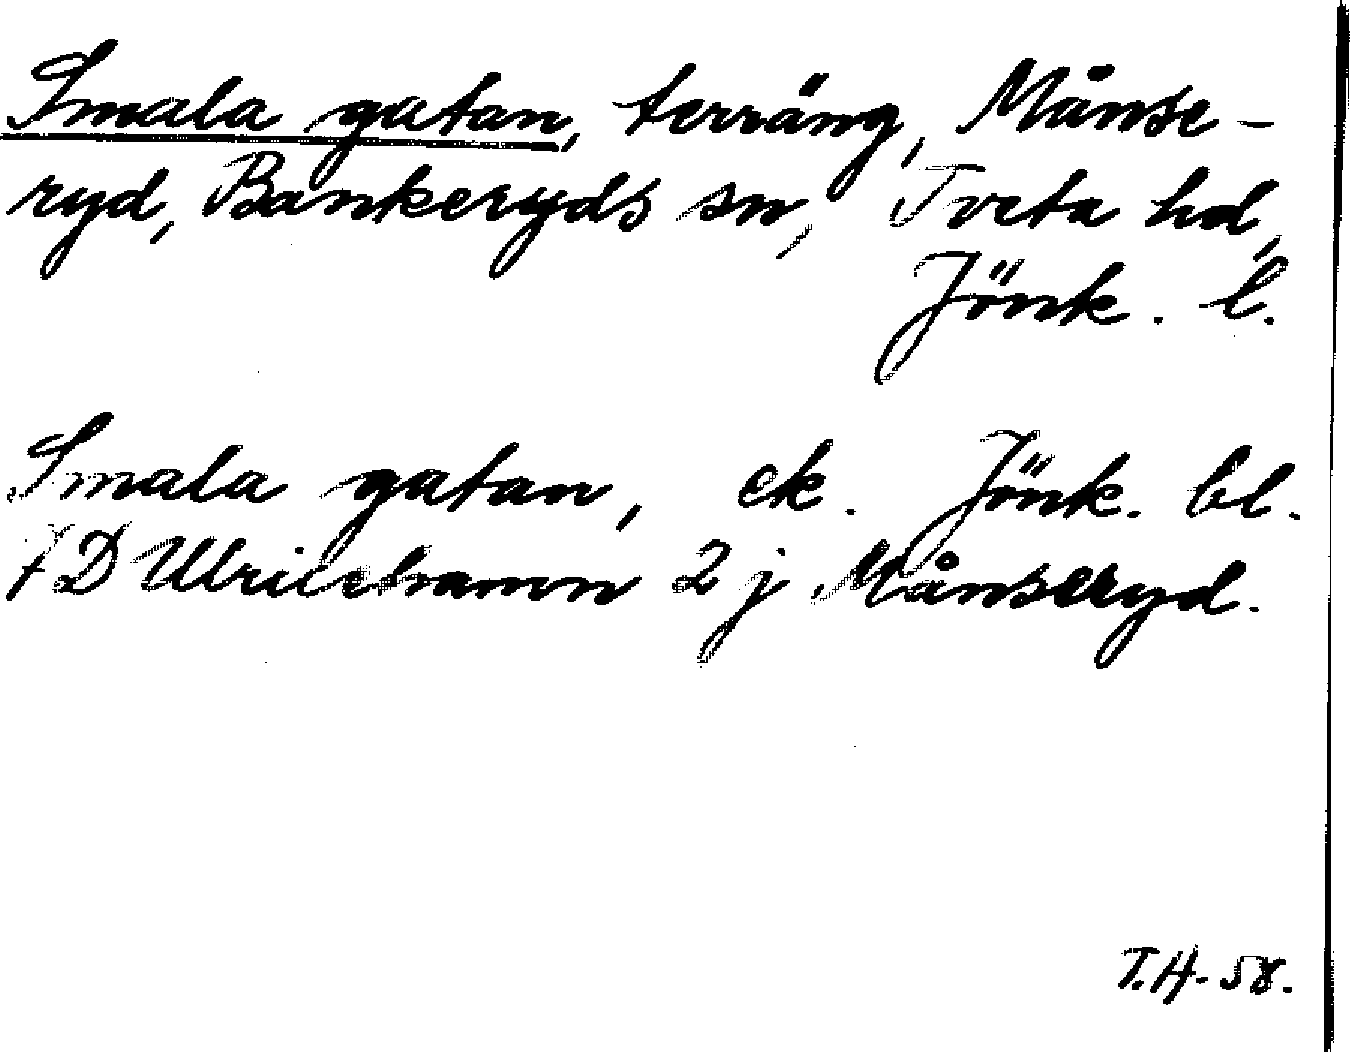 Smala gatan, terräng, Månse-
ryd, Bankeryds sn, Tveta hd,
Jönk. l.
Smala gatan, ek. Jönk. bl.
7D Ulricehamn 2j Månseryd.
T.H. 58.